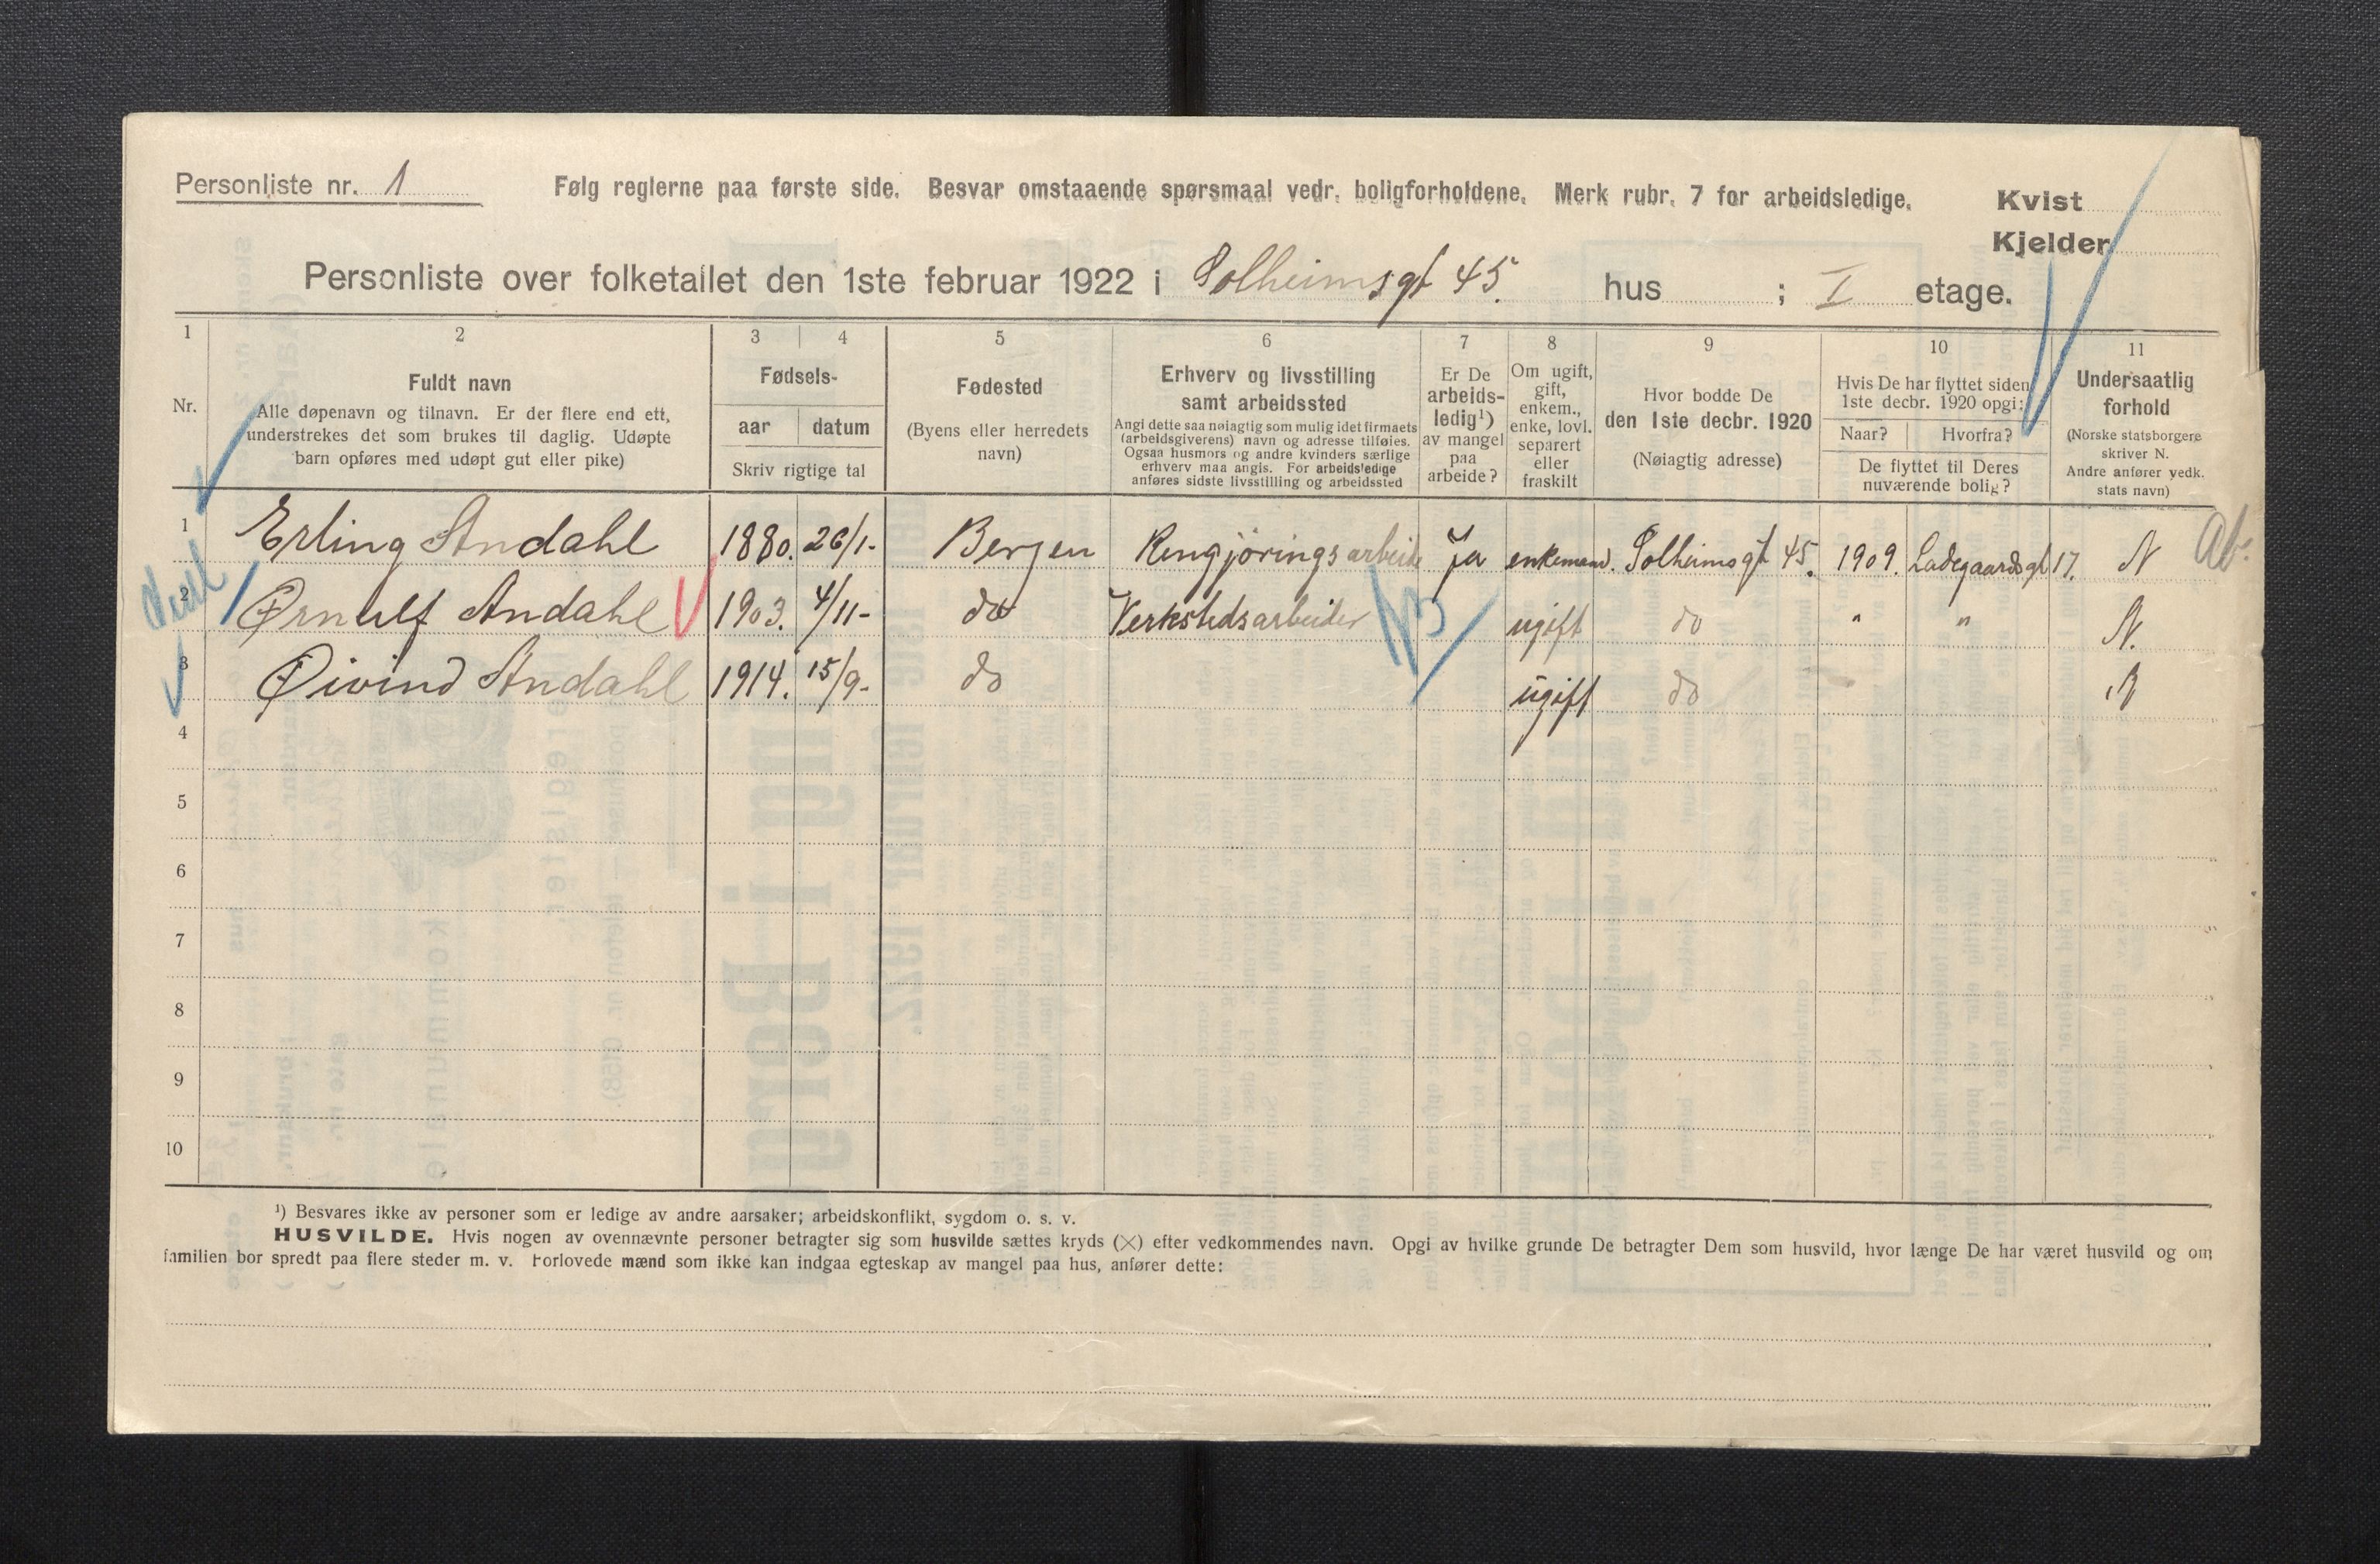 Personliste nr. 1
Følg reglerne paa første side. Besvar omstaaende spørsmaal vedr. boligforholdene. Merk rubr. 7 for arbeidsledige.
Kvist
Kjelder
Personliste over folketallet den 1ste februar 1922 i Solheimsgt 45. hus ; I etage.
1 2 3 4 5 6 7 8 9 10 11
Nr.
Fuldt navn
Alle døpenavn og tilnavn. Er der flere end ett,
understrekes det som brukes til daglig. Udøpte
barn opføres med udøpt gut eller pike)
Fødsels-
aar datum
Skriv rigtige tal
Fødested
(Byens eller herredets
navn)
Erhverv og livsstilling
samt arbeidssted
Angi dette saa nøiagtig som mulig idet firmaets
(arbeidsgiverens) navn og adresse tilføies.
Ogsaa husmors og andre kvinders særlige
erhverv maa angis. For arbeidsledige
anføres sidste livsstilling og arbeidssted
Er De
arbeids-
ledig¹)
av mangel
paa
arbeide?
Om ugift,
gift,
enkem.,
enke, lovl.
separert
eller
fraskilt
Hvor bodde De
den 1ste decbr. 1920
(Nøiagtig adresse)
Hvis De har flyttet siden
1ste decbr. 1920 opgi:
Naar? Hvorfra?
De flyttet til Deres
nuværende bolig?
Undersaatlig
forhold
(Norske statsborgere
skriver N.
Andre anfører vedk.
stats navn)
1 Erling Andahl 1880. 26/1- Bergen Rengjøringsarbeide Ja enkemand. Solheimsgt 45. 1909. Ladegaardsgt 17. N
2 Ørnulf Andahl 1903. 4/11- do Verkstedsarbeider ugift do " " N.
3 Øivind Andahl 1914. 15/9- do ugift do N
4
5
6
7
8
9
10
¹) Besvares ikke av personer som er ledige av andre aarsaker; arbeidskonflikt, sygdom o. s. v.
HUSVILDE. Hvis nogen av ovennævnte personer betragter sig som husvilde sættes kryds (×) efter vedkommendes navn. Opgi av hvilke grunde De betragter Dem som husvild, hvor længe De har været husvild og om
familien bor spredt paa flere steder m. v. Forlovede mænd som ikke kan indgaa egteskap av mangel paa hus, anfører dette: